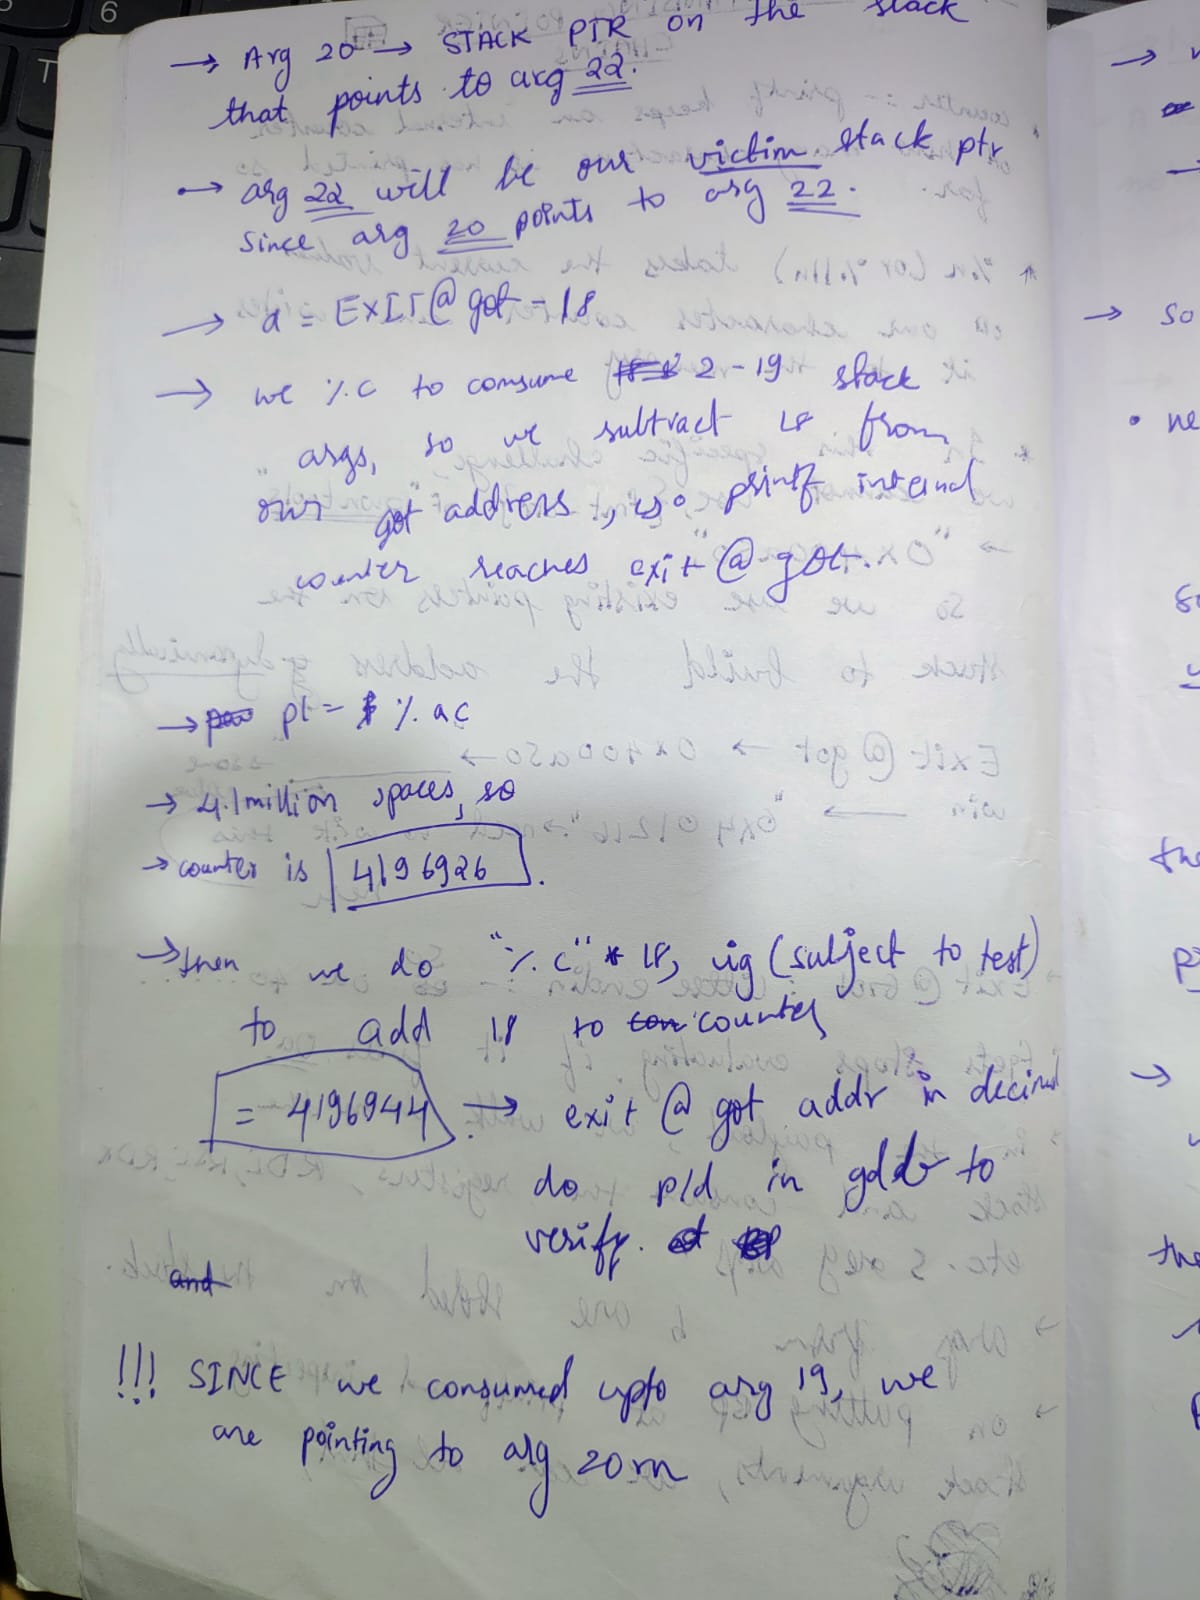 → Arg 20 → STACK PTR on the stack
that points to arg 22.
→ arg 22 will be our victim stack ptr
since arg 20 points to arg 22.
→ a = EXIT@got - 18
→ we %c to consume 2-19 stack
args, so we subtract 18 from
our got address, so printf internal
counter reaches exit@got.
→ p1 = % ac
→ 4.1 million spaces, so
→ counter is 4196926.
→ then we do "%c" * 18, ig (subject to test)
to add 18 to counter
= 4196944 → exit@got addr in decimal
do p/d in gdb to
verify.
and
!!! SINCE we consumed upto arg 19, we
are pointing to arg 20
→ so
• ne
the
→
the